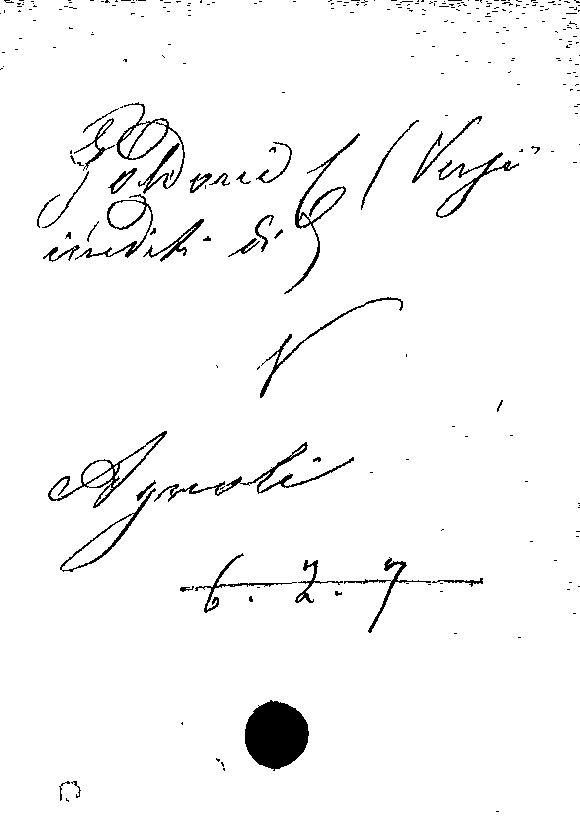 Goldoni C (Versi
inediti di)
V
Agnoli
6. 2. 7